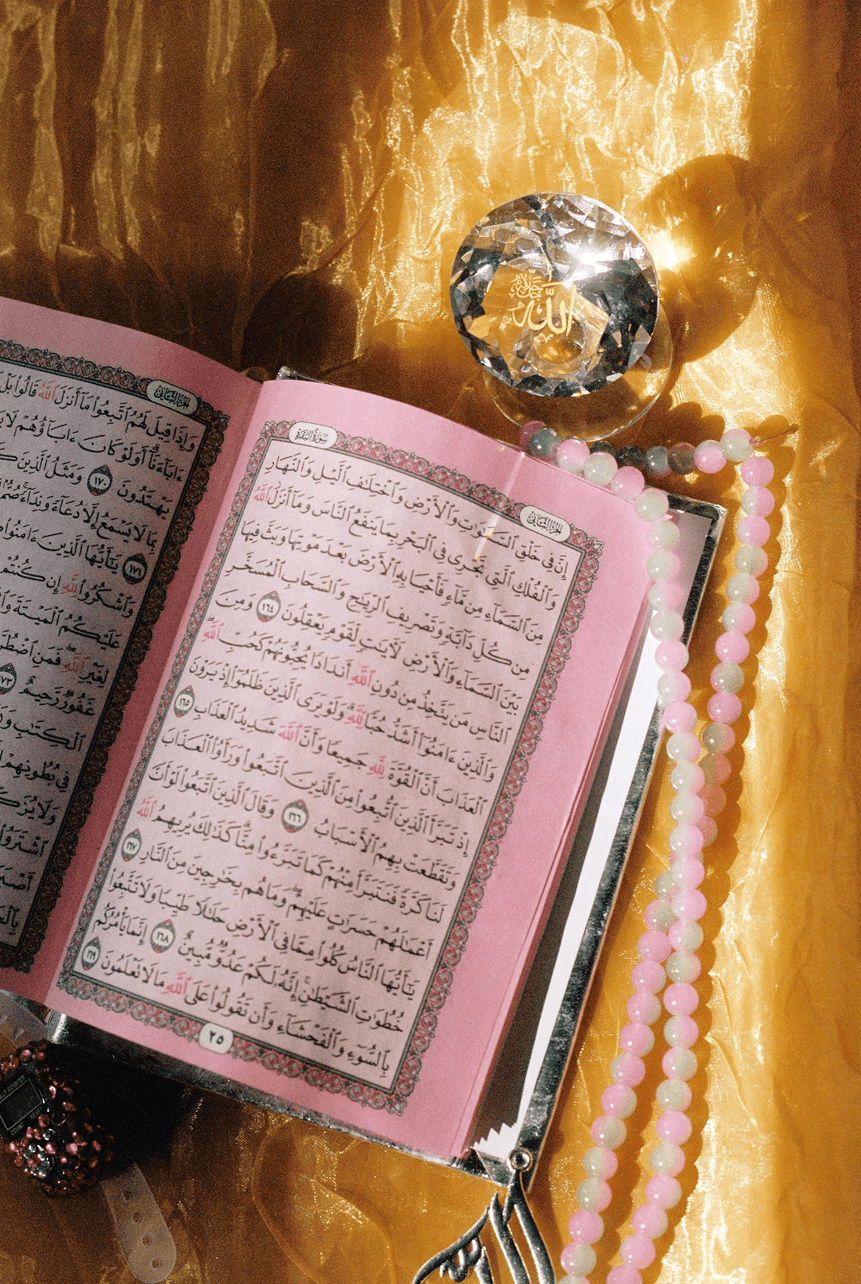 سُورَةُ البَقَرَةِ
الجُزْءُ الثَّانِي
إِنَّ فِي خَلْقِ ٱلسَّمَٰوَٰتِ وَٱلْأَرْضِ وَٱخْتِلَٰفِ ٱلَّيْلِ وَٱلنَّهَارِ
وَٱلْفُلْكِ ٱلَّتِي تَجْرِي فِي ٱلْبَحْرِ بِمَا يَنفَعُ ٱلنَّاسَ وَمَآ أَنزَلَ ٱللَّهُ
مِنَ ٱلسَّمَآءِ مِن مَّآءٍ فَأَحْيَا بِهِ ٱلْأَرْضَ بَعْدَ مَوْتِهَا وَبَثَّ فِيهَا
مِن كُلِّ دَآبَّةٍ وَتَصْرِيفِ ٱلرِّيَٰحِ وَٱلسَّحَابِ ٱلْمُسَخَّرِ
بَيْنَ ٱلسَّمَآءِ وَٱلْأَرْضِ لَأٓيَٰتٍ لِّقَوْمٍ يَعْقِلُونَ ١٦٤ وَمِنَ
ٱلنَّاسِ مَن يَتَّخِذُ مِن دُونِ ٱللَّهِ أَندَادًا يُحِبُّونَهُمْ كَحُبِّ ٱللَّهِۖ
وَٱلَّذِينَ ءَامَنُوٓا۟ أَشَدُّ حُبًّا لِّلَّهِۗ وَلَوْ يَرَى ٱلَّذِينَ ظَلَمُوٓا۟ إِذْ يَرَوْنَ
ٱلْعَذَابَ أَنَّ ٱلْقُوَّةَ لِلَّهِ جَمِيعًا وَأَنَّ ٱللَّهَ شَدِيدُ ٱلْعَذَابِ ١٦٥
إِذْ تَبَرَّأَ ٱلَّذِينَ ٱتُّبِعُوا۟ مِنَ ٱلَّذِينَ ٱتَّبَعُوا۟ وَرَأَوُا۟ ٱلْعَذَابَ
وَتَقَطَّعَتْ بِهِمُ ٱلْأَسْبَابُ ١٦٦ وَقَالَ ٱلَّذِينَ ٱتَّبَعُوا۟ لَوْ أَنَّ
لَنَا كَرَّةً فَنَتَبَرَّأَ مِنْهُمْ كَمَا تَبَرَّءُوا۟ مِنَّاۗ كَذَٰلِكَ يُرِيهِمُ ٱللَّهُ
أَعْمَٰلَهُمْ حَسَرَٰتٍ عَلَيْهِمْۖ وَمَا هُم بِخَٰرِجِينَ مِنَ ٱلنَّارِ ١٦٧
يَٰٓأَيُّهَا ٱلنَّاسُ كُلُوا۟ مِمَّا فِي ٱلْأَرْضِ حَلَٰلًا طَيِّبًا وَلَا تَتَّبِعُوا۟
خُطُوَٰتِ ٱلشَّيْطَٰنِۚ إِنَّهُۥ لَكُمْ عَدُوٌّ مُّبِينٌ ١٦٨ إِنَّمَا يَأْمُرُكُم
بِٱلسُّوٓءِ وَٱلْفَحْشَآءِ وَأَن تَقُولُوا۟ عَلَى ٱللَّهِ مَا لَا تَعْلَمُونَ ١٦٩
٢٥
الجُزْءُ الثَّانِي
وَإِذَا قِيلَ لَهُمُ ٱتَّبِعُوا۟ مَآ أَنزَلَ ٱللَّهُ قَالُوا۟ بَلْ
ءَابَآءَنَآۗ أَوَلَوْ كَانَ ءَابَآؤُهُمْ لَا
يَهْتَدُونَ ١٧٠ وَمَثَلُ ٱلَّذِينَ
بِمَا لَا يَسْمَعُ إِلَّا دُعَآءً وَنِدَآءًۚ صُمٌّ
١٧١ يَٰٓأَيُّهَا ٱلَّذِينَ ءَامَنُوا۟
وَٱشْكُرُوا۟ لِلَّهِ إِن كُنتُمْ
عَلَيْكُمُ ٱلْمَيْتَةَ
لِغَيْرِ ٱللَّهِۖ فَمَنِ
غَفُورٌ رَّحِيمٌ ١٧٣
ٱلْكِتَٰبِ
فِي بُطُونِهِمْ
وَلَا
ٱشْتَرَوُا۟
ٱللَّه جل جلاله